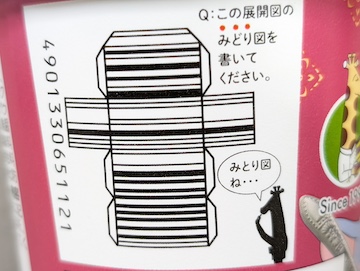 Q:この展開図の
みどり図を
書いて
ください。
4901330651121
みとり図
ね・・・
Since 19